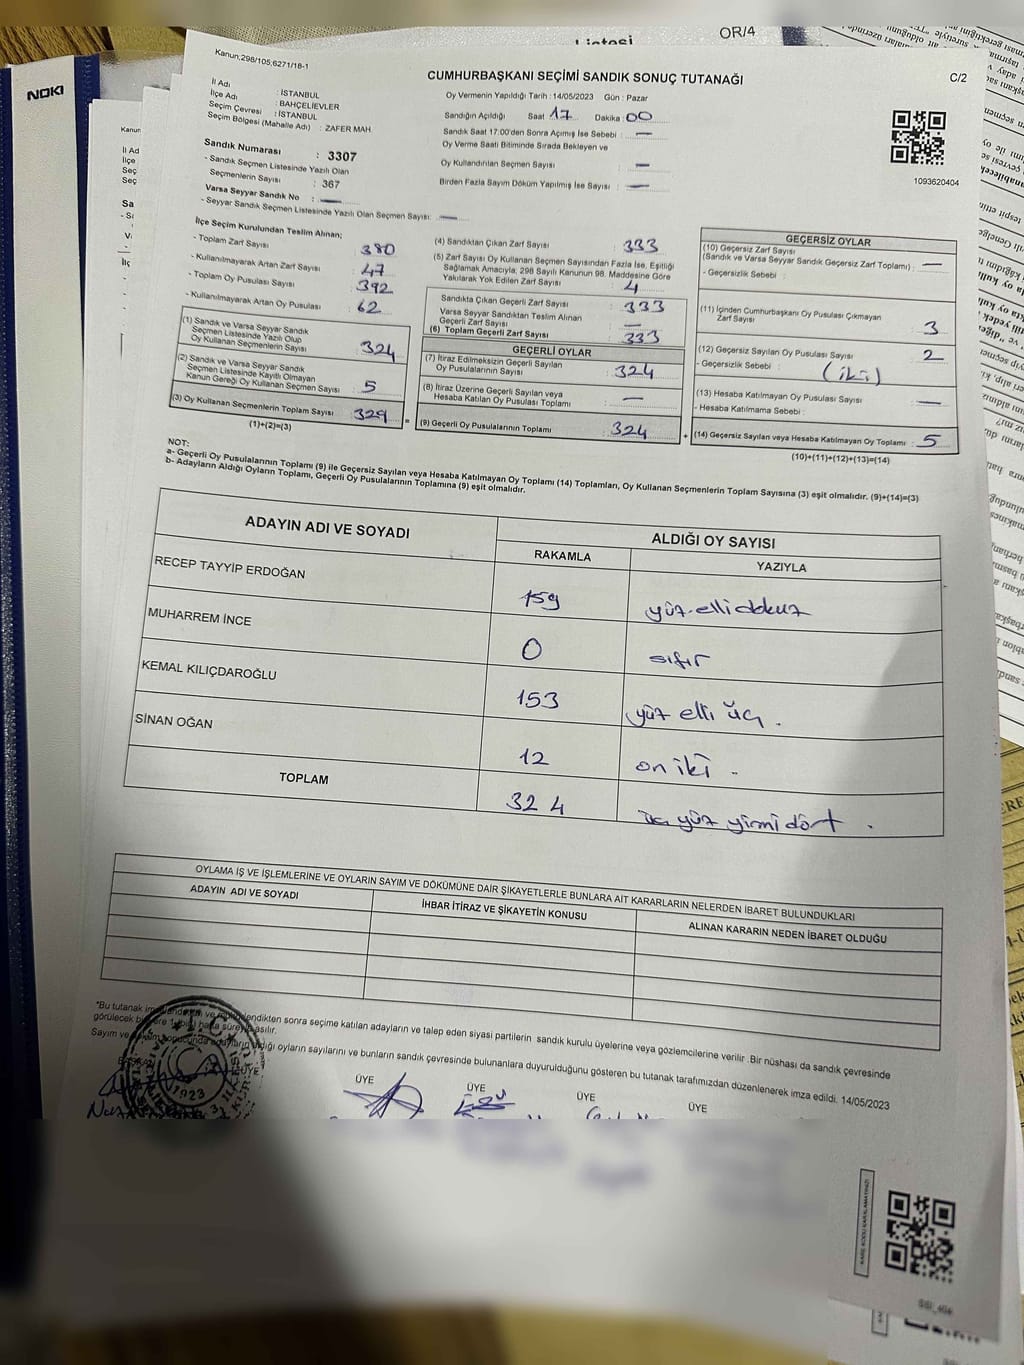 Listesi
OR/4
NOKI
Kanun:298/105,6271/18-1
CUMHURBAŞKANI SEÇİMİ SANDIK SONUÇ TUTANAĞI
C/2
İl Adı : İSTANBUL
İlçe Adı : BAHÇELİEVLER
Seçim Çevresi : İSTANBUL
Seçim Bölgesi (Mahalle Adı) : ZAFER MAH.
Oy Vermenin Yapıldığı Tarih : 14/05/2023 Gün : Pazar
Sandığın Açıldığı Saat 17 Dakika 00
Sandık Saat 17:00'den Sonra Açımış İse Sebebi : —
Oy Verme Saati Bitiminde Sırada Bekleyen ve
Oy Kullandırılan Seçmen Sayısı —
Birden Fazla Sayım Döküm Yapılmış İse Sayısı : —
1093620404
Sandık Numarası : 3307
- Sandık Seçmen Listesinde Yazılı Olan
Seçmenlerin Sayısı : 367
Varsa Seyyar Sandık No : —
- Seyyar Sandık Seçmen Listesinde Yazılı Olan Seçmen Sayısı: —
İlçe Seçim Kurulundan Teslim Alınan;
- Toplam Zarf Sayısı : 380
- Kullanılmayarak Artan Zarf Sayısı : 47
- Toplam Oy Pusulası Sayısı : 392
- Kullanılmayarak Artan Oy Pusulası : 62
(1) Sandık ve Varsa Seyyar Sandık
Seçmen Listesinde Yazılı Olup
Oy Kullanan Seçmenlerin Sayısı : 324
(2) Sandık ve Varsa Seyyar Sandık
Seçmen Listesinde Kayıtlı Olmayan
Kanun Gereği Oy Kullanan Seçmen Sayısı : 5
(3) Oy Kullanan Seçmenlerin Toplam Sayısı : 329
(1)+(2)=(3)
(4) Sandıktan Çıkan Zarf Sayısı : 333
(5) Zarf Sayısı Oy Kullanan Seçmen Sayısından Fazla İse, Eşitliği
Sağlamak Amacıyla; 298 Sayılı Kanunun 98. Maddesine Göre
Yakılarak Yok Edilen Zarf Sayısı : 4
Sandıkta Çıkan Geçerli Zarf Sayısı : 333
Varsa Seyyar Sandıktan Teslim Alınan
Geçerli Zarf Sayısı : —
(6) Toplam Geçerli Zarf Sayısı : 333
GEÇERLİ OYLAR
(7) İtiraz Edilmeksizin Geçerli Sayılan
Oy Pusulalarının Sayısı : 324
(8) İtiraz Üzerine Geçerli Sayılan veya
Hesaba Katılan Oy Pusulası Toplamı : —
(9) Geçerli Oy Pusulalarının Toplamı : 324
GEÇERSİZ OYLAR
(10) Geçersiz Zarf Sayısı
(Sandık ve Varsa Seyyar Sandık Geçersiz Zarf Toplamı) : —
- Geçersizlik Sebebi :
(11) İçinden Cumhurbaşkanı Oy Pusulası Çıkmayan
Zarf Sayısı : 3
(12) Geçersiz Sayılan Oy Pusulası Sayısı : 2
- Geçersizlik Sebebi : (iki)
(13) Hesaba Katılmayan Oy Pusulası Sayısı : —
- Hesaba Katılmama Sebebi :
(14) Geçersiz Sayılan veya Hesaba Katılmayan Oy Toplamı : 5
(10)+(11)+(12)+(13)=(14)
NOT:
a- Geçerli Oy Pusulalarının Toplamı (9) ile Geçersiz Sayılan veya Hesaba Katılmayan Oy Toplamı (14) Toplamları, Oy Kullanan Seçmenlerin Toplam Sayısına (3) eşit olmalıdır. (9)+(14)=(3)
b- Adayların Aldığı Oyların Toplamı, Geçerli Oy Pusulalarının Toplamına (9) eşit olmalıdır.
ADAYIN ADI VE SOYADI
ALDIĞI OY SAYISI
RAKAMLA YAZIYLA
RECEP TAYYİP ERDOĞAN 159 yüz elli dokuz
MUHARREM İNCE 0 sıfır
KEMAL KILIÇDAROĞLU 153 yüz elli üç .
SİNAN OĞAN 12 on iki .
TOPLAM 324 üç yüz yirmi dört .
OYLAMA İŞ VE İŞLEMLERİNE VE OYLARIN SAYIM VE DÖKÜMÜNE DAİR ŞİKAYETLERLE BUNLARA AİT KARARLARIN NELERDEN İBARET BULUNDUKLARI
ADAYIN ADI VE SOYADI
İHBAR İTİRAZ VE ŞİKAYETİN KONUSU
ALINAN KARARIN NEDEN İBARET OLDUĞU
sonra seçime katılan adayların ve talep eden siyasi partilerin sandık kurulu üyelerine veya gözlemcilerine verilir .Bir nüshası da sandık çevresinde
oyların sayılarını ve bunların sandık çevresinde bulunanlara duyurulduğunu gösteren bu tutanak tarafımızdan düzenlenerek imza edildi. 14/05/2023
ÜYE
ÜYE
ÜYE
ÜYE
ÜYE
1923